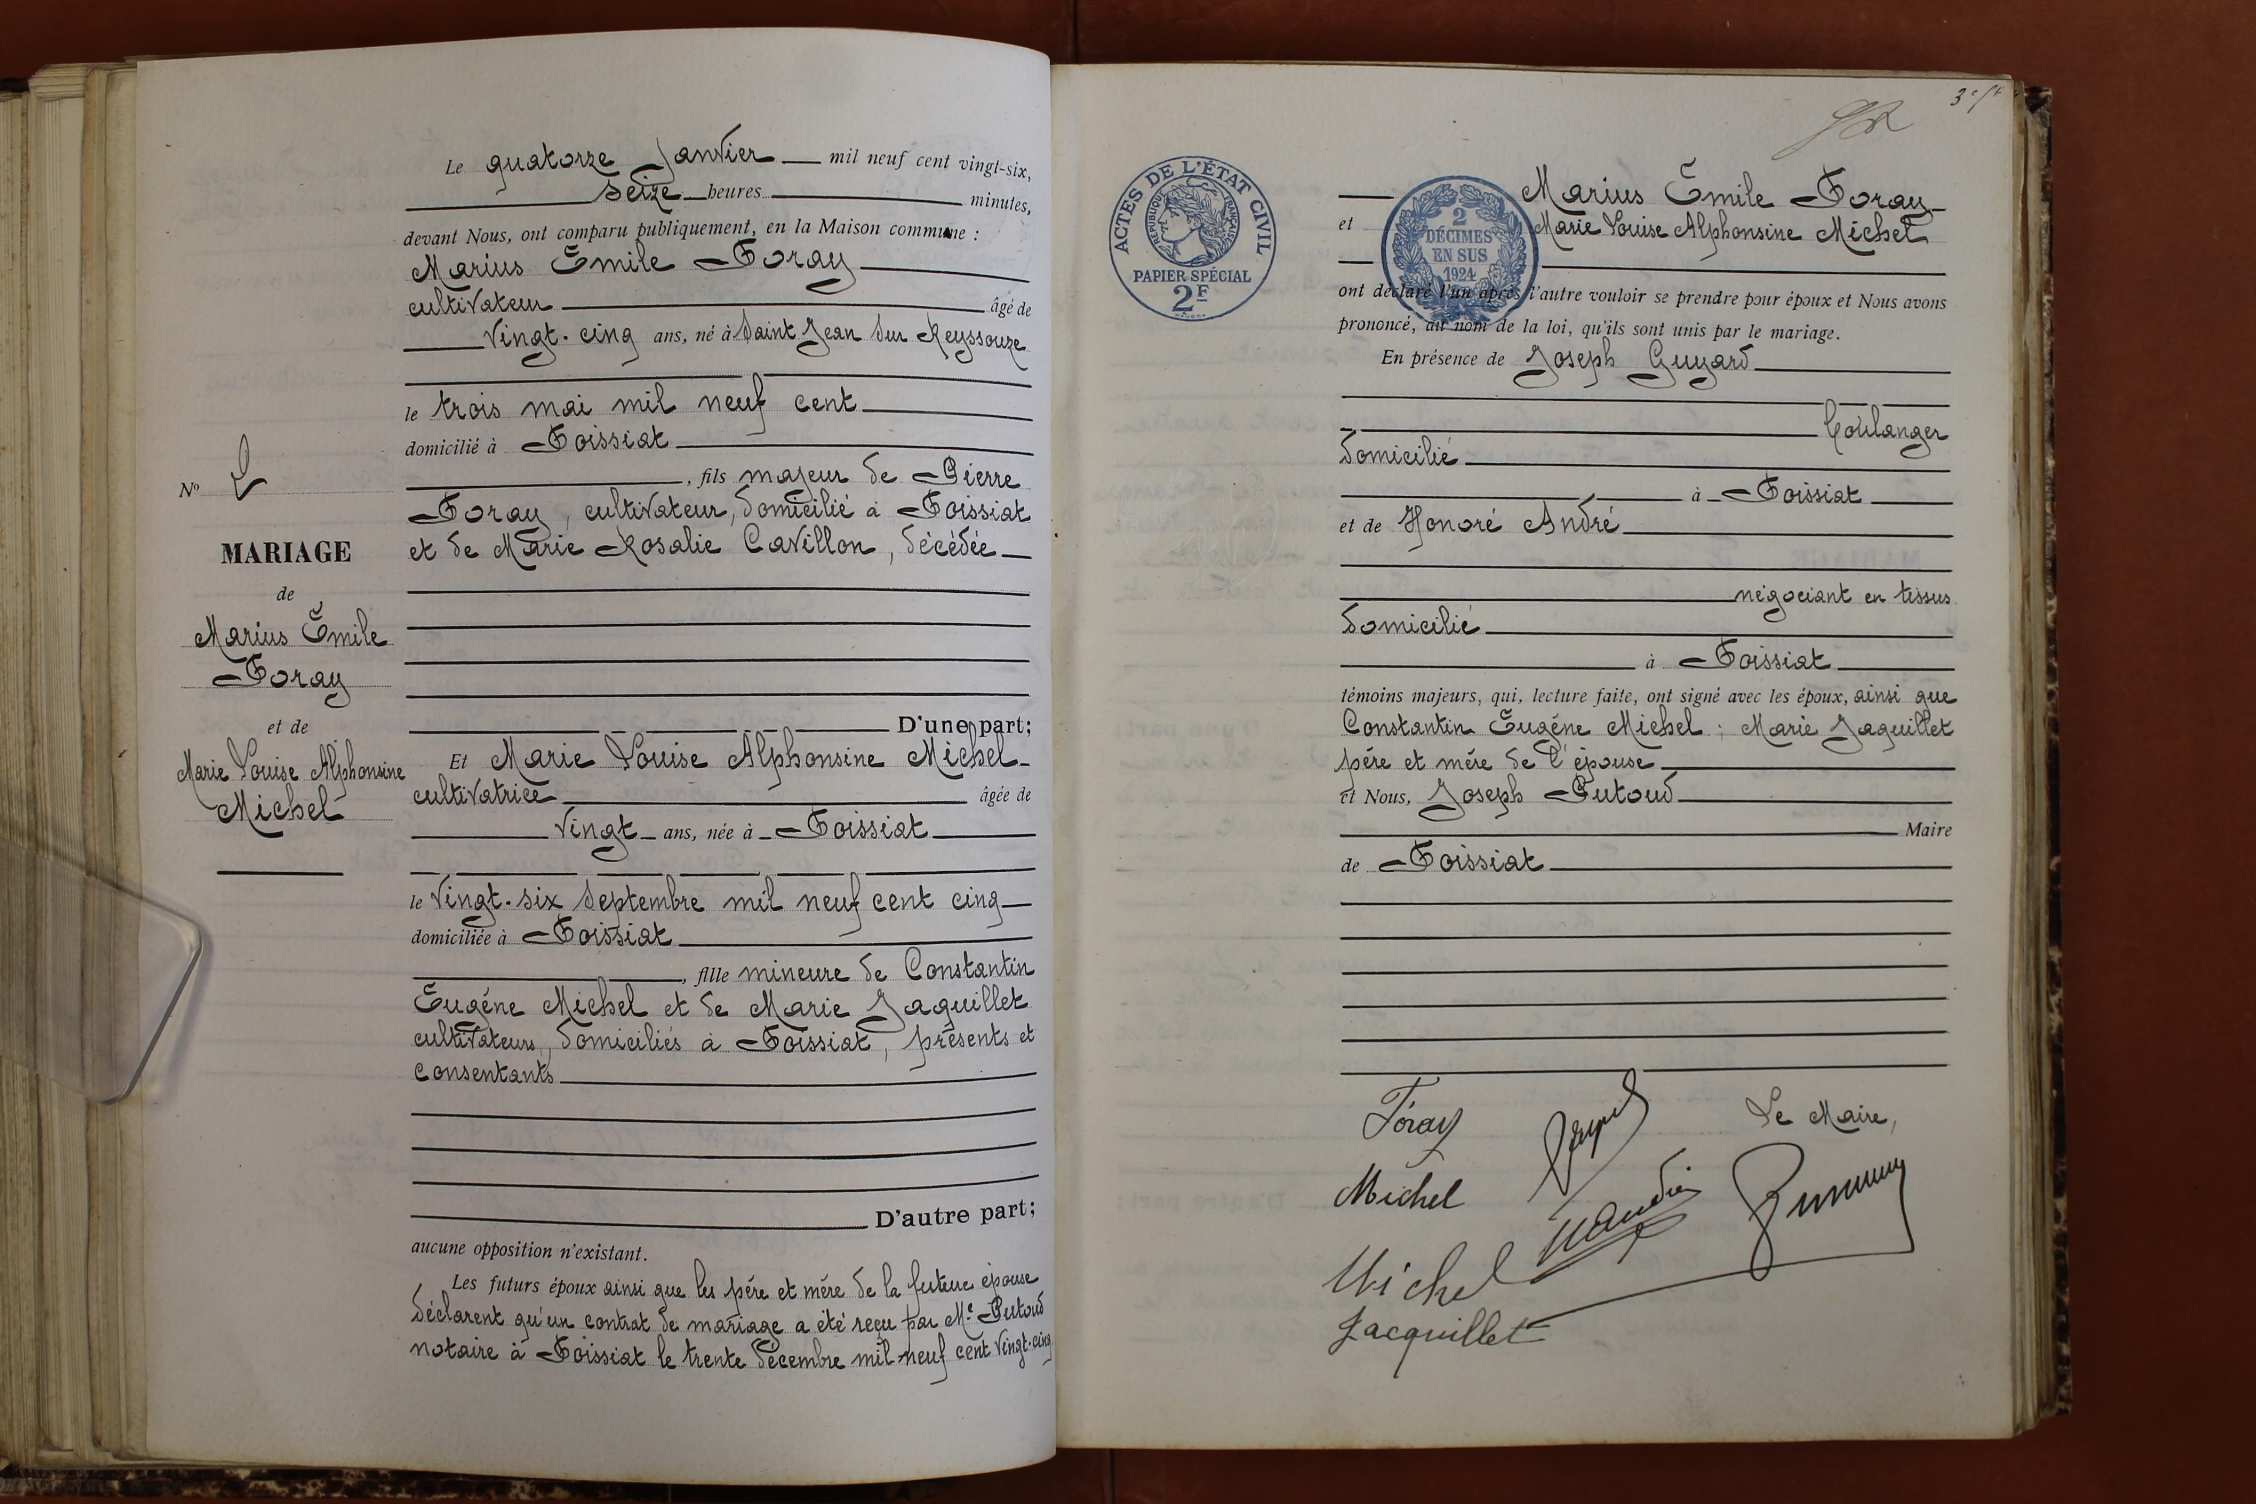 Le quatorze Janvier mil neuf cent vingt-six,
seize heures minutes,
devant Nous, ont comparu publiquement, en la Maison commune :
Marius Émile Foray
cultivateur âgé de
vingt-cinq ans, né à Saint Jean sur Reyssouze
le trois mai mil neuf cent
domicilié à Foissiat
, fils majeur de Pierre
Foray, cultivateur, domicilié à Foissiat
et de Marie Rosalie Cavillon, décédée
D'une part;
Et Marie Louise Alphonsine Michel
cultivatrice âgée de
vingt ans, née à Foissiat
le vingt-six septembre mil neuf cent cinq
domiciliée à Foissiat
, fille mineure de Constantin
Eugéne Michel et de Marie Jaquillet
cultivateurs, domiciliés à Foissiat, présents et
consentants
D'autre part;
aucune opposition n'existant.
Les futurs époux ainsi que les pére et mére de la future épouse
déclarent qu'un contrat de mariage a été reçu par Me Putoud
notaire à Foissiat le trente décembre mil neuf cent vingt-cinq
No 2
MARIAGE
de
Marius Émile
Foray
et de
Marie Louise Alphonsine
Michel
ACTES DE L'ÉTAT CIVIL
RÉPUBLIQUE FRANÇAISE
PAPIER SPÉCIAL
2F
2
DÉCIMES
EN SUS
1924
Marius Émile Foray
et Marie Louise Alphonsine Michel
ont déclaré l'un après l'autre vouloir se prendre pour époux et Nous avons
prononcé, au nom de la loi, qu'ils sont unis par le mariage.
En présence de Joseph Guyard
boulanger
domicilié
à Foissiat
et de Honoré André
négociant en tissus
domicilié
à Foissiat
témoins majeurs, qui, lecture faite, ont signé avec les époux, ainsi que
Constantin Eugéne Michel ; Marie Jaquillet
pére et mére de l'épouse
et Nous, Joseph Putoud
Maire
de Foissiat
Foray
Le Maire,
Michel
Michel
Jacquillet